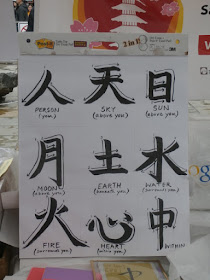 Post-it
2 in 1!
人 天 日
PERSON SKY SUN
(you.) (above you.) (above you.)
月 土 水
MOON EARTH WATER
(above you.) (beneath you.) (surrounds you.)
火 心 中
FIRE HEART WITHIN
(surrounds you.) (within you.)